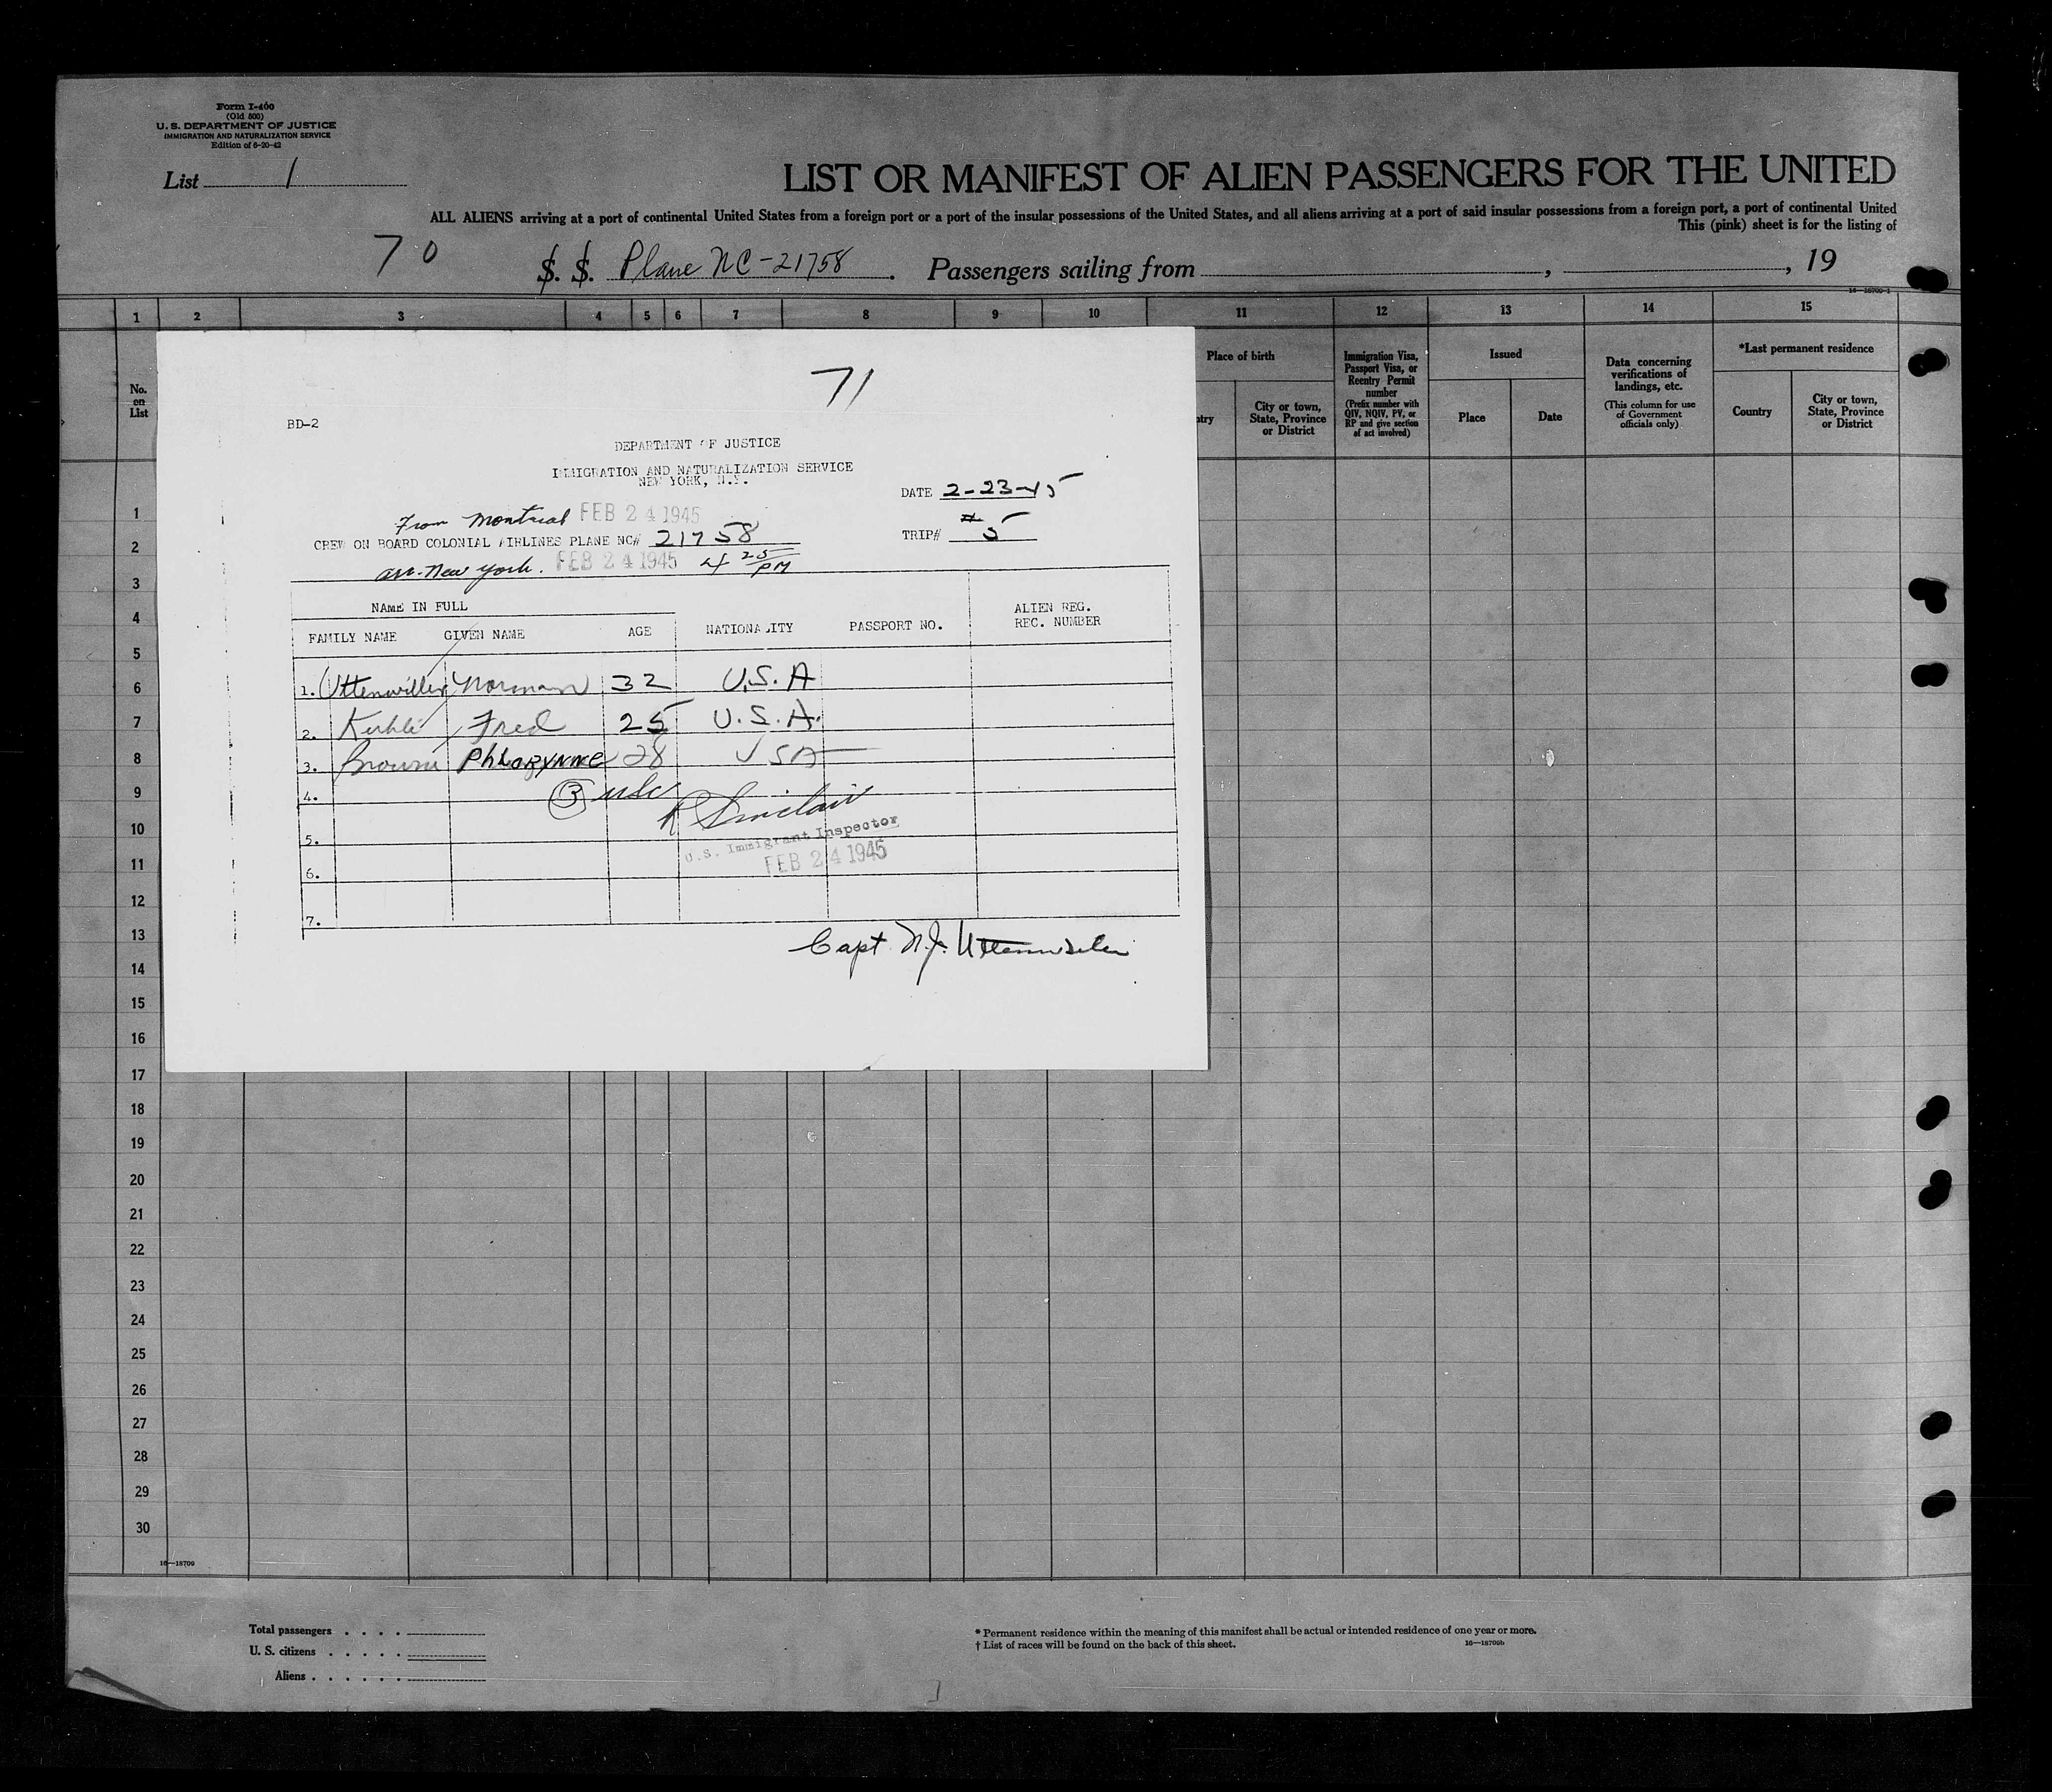 Form I-400
(Old 500)
U. S. DEPARTMENT OF JUSTICE
IMMIGRATION AND NATURALIZATION SERVICE
Edition of 6-20-42
List 1
LIST OR MANIFEST OF ALIEN PASSENGERS FOR THE UNITED
ALL ALIENS arriving at a port of continental United States from a foreign port or a port of the insular possessions of the United States, and all aliens arriving at a port of said insular possessions from a foreign port, a port of continental United
This (pink) sheet is for the listing of
70 S. S. Plane NC-21758. Passengers sailing from , , 19
16—18700-1
1 2 3 4 5 6 7 8 9 10 11 12 13 14 15
No. on List
Place of birth
City or town, State, Province or District
Immigration Visa, Passport Visa, or Reentry Permit number
(Prefix number with QIV, NQIV, PV, or RP and give section of act involved)
Issued
Place Date
Data concerning verifications of landings, etc.
(This column for use of Government officials only)
*Last permanent residence
Country
City or town, State, Province or District
71
BD-2
DEPARTMENT OF JUSTICE
IMMIGRATION AND NATURALIZATION SERVICE
NEW YORK, N.Y.
DATE 2-23-45
From Montreal FEB 24 1945
CREW ON BOARD COLONIAL AIRLINES PLANE NC# 21758
TRIP# # 5
arr. New York. FEB 24 1945 4 25 PM
NAME IN FULL
FAMILY NAME GIVEN NAME AGE NATIONALITY PASSPORT NO. ALIEN REG. REC. NUMBER
1. Uttenweiler Norman 32 U.S.A
2. Fred 25 U.S.A.
3. Browne PhLORYNNE 28 USA
4. 3 USC
R Sinclair
5.
U.S. Immigrant Inspector
FEB 24 1945
6.
7.
Capt. N.J. Uttenweiler
1
2
3
4
5
6
7
8
9
10
11
12
13
14
15
16
17
18
19
20
21
22
23
24
25
26
27
28
29
30
16—18709
Total passengers . . . .
U. S. citizens . . . . .
Aliens . . . . . .
* Permanent residence within the meaning of this manifest shall be actual or intended residence of one year or more.
† List of races will be found on the back of this sheet.
16—18700b